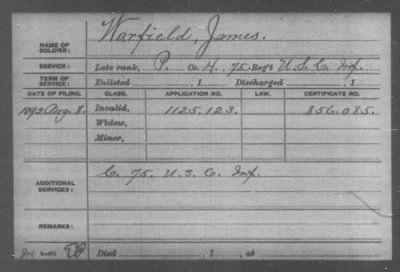 NAME OF SOLDIER: Warfield, James.
SERVICE: Late rank, P. Co. H. 75. Reg't U. S. C. Inf.
TERM OF SERVICE: Enlisted , 1 Discharged , 1
DATE OF FILING. CLASS. APPLICATION NO. LAW. CERTIFICATE NO.
1892 Aug. 8. Invalid, 1125.123. 856.085.
Widow,
Minor,
ADDITIONAL SERVICES: C. 75. U. S. C. Inf.
REMARKS:
Died , 1 , at